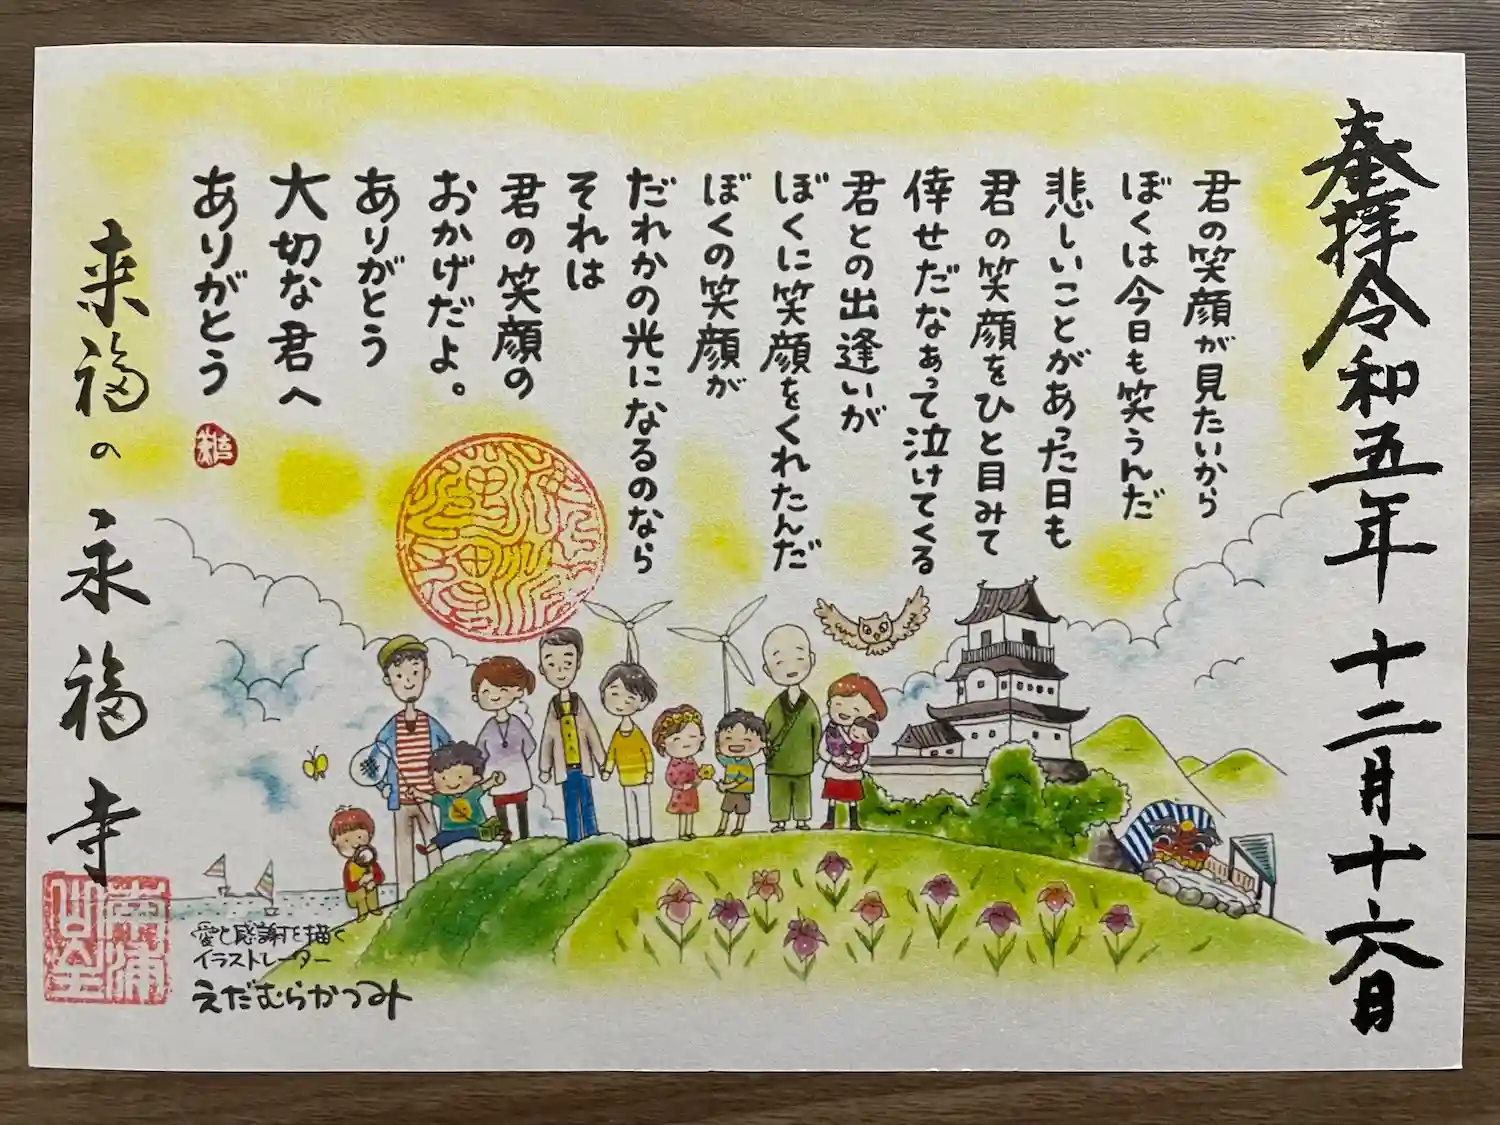 奉拝令和五年十二月十六日
君の笑顔が見たいから
ぼくは今日も笑うんだ
悲しいことがあった日も
君の笑顔をひと目みて
倖せだなぁって泣けてくる
君との出逢いが
ぼくに笑顔をくれたんだ
ぼくの笑顔が
だれかの光になるのなら
それは
君の笑顔の
おかげだよ。
ありがとう
大切な君へ
ありがとう
来福の永福寺
愛と感謝を描く
イラストレーター
えだむらかつみ